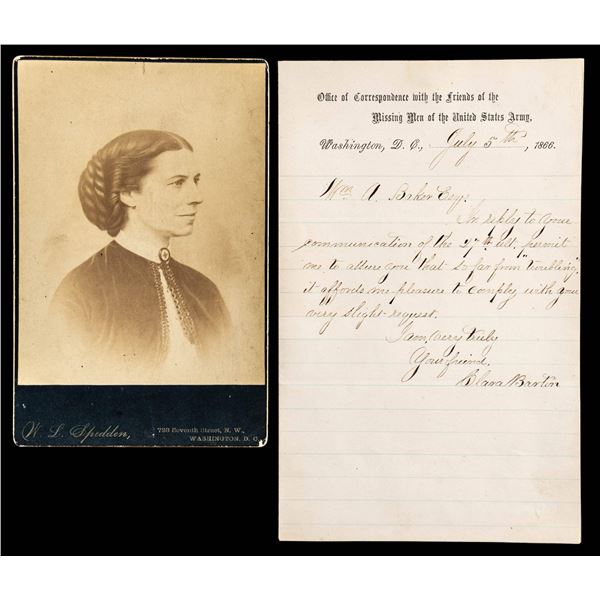 W. L. Spedden,
723 Seventh Street, N. W.,
WASHINGTON, D. C.
Office of Correspondence with the Friends of the
Missing Men of the United States Army,
Washington, D. C., July 5th, 1866.
Wm A. Baker Esq:
In reply to your
communication of the 27th ult, permit
me to assure you that so far from "troubling,"
it affords me pleasure to comply with your
very slight request.
I am, very truly
Your friend,
Clara Barton